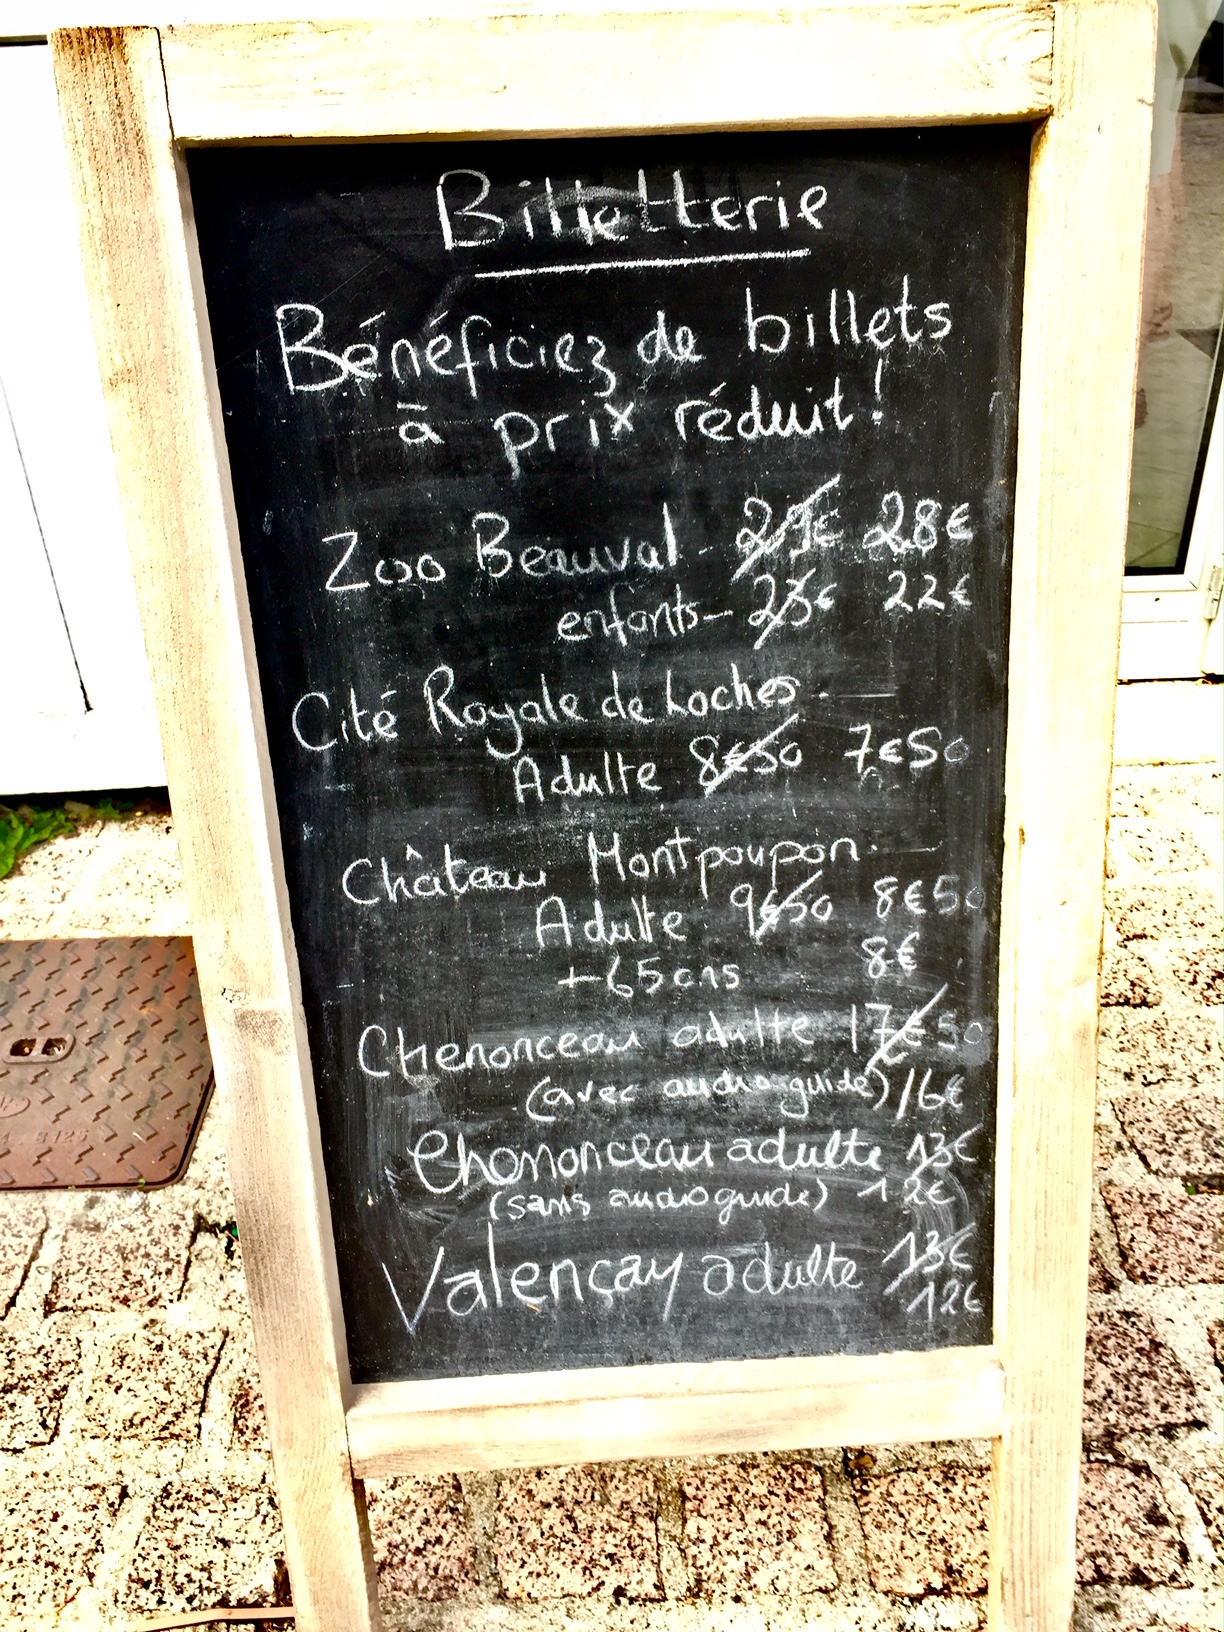 Billetterie
Bénéficiez de billets
à prix réduit!
Zoo Beauval - 29€ 28€
enfants - 23€ 22€
Cité Royale de Loches.
Adulte 8€50 7€50
Château Montpoupon.
Adulte 9€50 8€50
+65ans 8€
Chenonceau adulte 17€50
(avec audioguide) 16€
Chenonceau adulte 13€
(sans audioguide) 12€
Valençay adulte 13€
12€